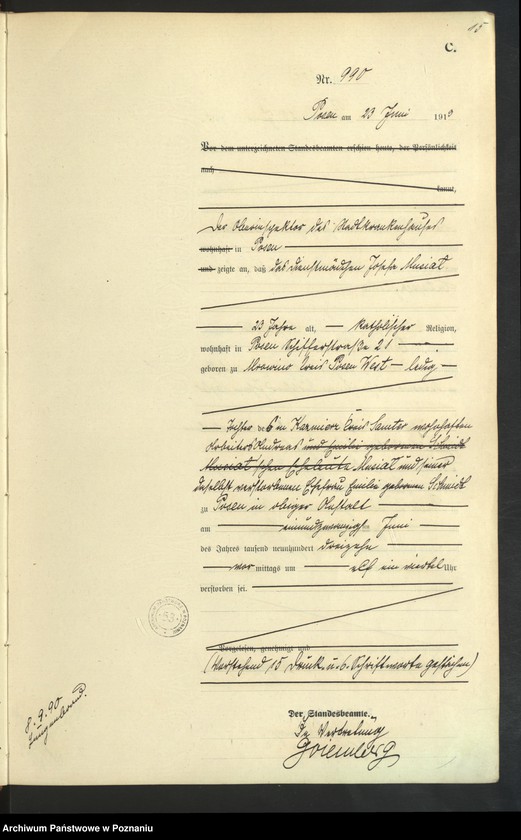 15
C.
Nr. 990
Posen am 23 Juni 1913
Vor dem unterzeichneten Standesbeamten erschien heute, der Persönlichkeit
nach
kannt,
Der Oberinspektor des Stadtkrankenhauses
wohnhaft in Posen
und zeigte an, daß das Dienstmädchen Josefa Musiat
23 Jahre alt, katholischer Religion,
wohnhaft in Posen Schifferstraße 21
geboren zu Mrowino Kreis Posen West ledig
Tochter des in Kazmierz Kreis Samter wohnhaften
Arbeiters Andreas und Emilie geborenen Schmidt
Musiat'schen Eheleute Musiat und seiner
daselbst verstorbenen Ehefrau Emilie geborenen Schmidt
zu Posen in obiger Anstalt
am einundzwanzigsten Juni
des Jahres tausend neunhundert dreizehn
vor mittags um elf ein viertel Uhr
verstorben sei.
Vorgelesen, genehmigt und
(Vorstehend 15 Druck u. 6 Schriftworte gestrichen)
Der Standesbeamte.
In Vertretung
53
8.9.90
Archiwum Państwowe w Poznaniu